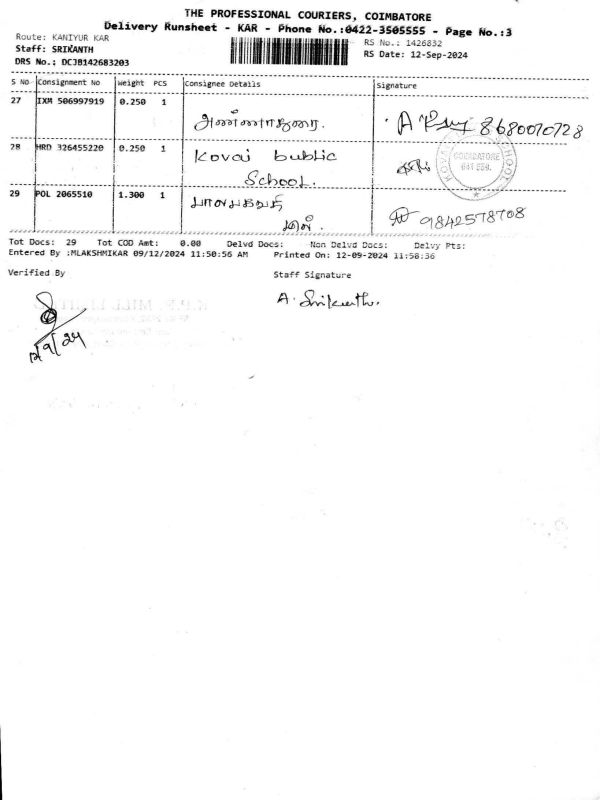 THE PROFESSIONAL COURIERS, COIMBATORE
Delivery Runsheet - KAR - Phone No.:0422-3505555 - Page No.:3
Route: KANIYUR KAR RS No.: 1426832
Staff: SRIKANTH RS Date: 12-Sep-2024
DRS No.: DCJB142683203
S No Consignment No Weight PCS Consignee Details Signature
27 IXM 506997919 0.250 1
அண்ணாதுரை. 8680070728
28 HRD 326455220 0.250 1 Kovai public
School. COIMBATORE
29 POL 2065510 1.300 1 பாலபகவதி
மில். 9842578708
Tot Docs: 29 Tot COD Amt: 0.00 Delvd Docs: Non Delvd Docs: Delvy Pts:
Entered By :MLAKSHMIKAR 09/12/2024 11:50:56 AM Printed On: 12-09-2024 11:58:36
Verified By Staff Signature
A. Srikanth.
12/9/24